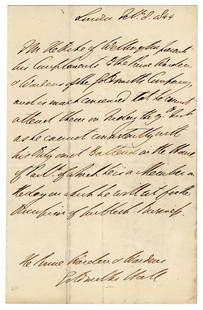 London Feb. 3. 1844
F M the Duke of Wellington presents
his Compliments to the Prime Warden
& Wardens of the Goldsmiths Company,
and is much concerned that he cannot
attend them on
as he cannot consistently with
his Duty not attend in the House
of of which he is a Member on
the day on which he will be for the
of

The Prime Warden & Wardens
Goldsmiths Hall